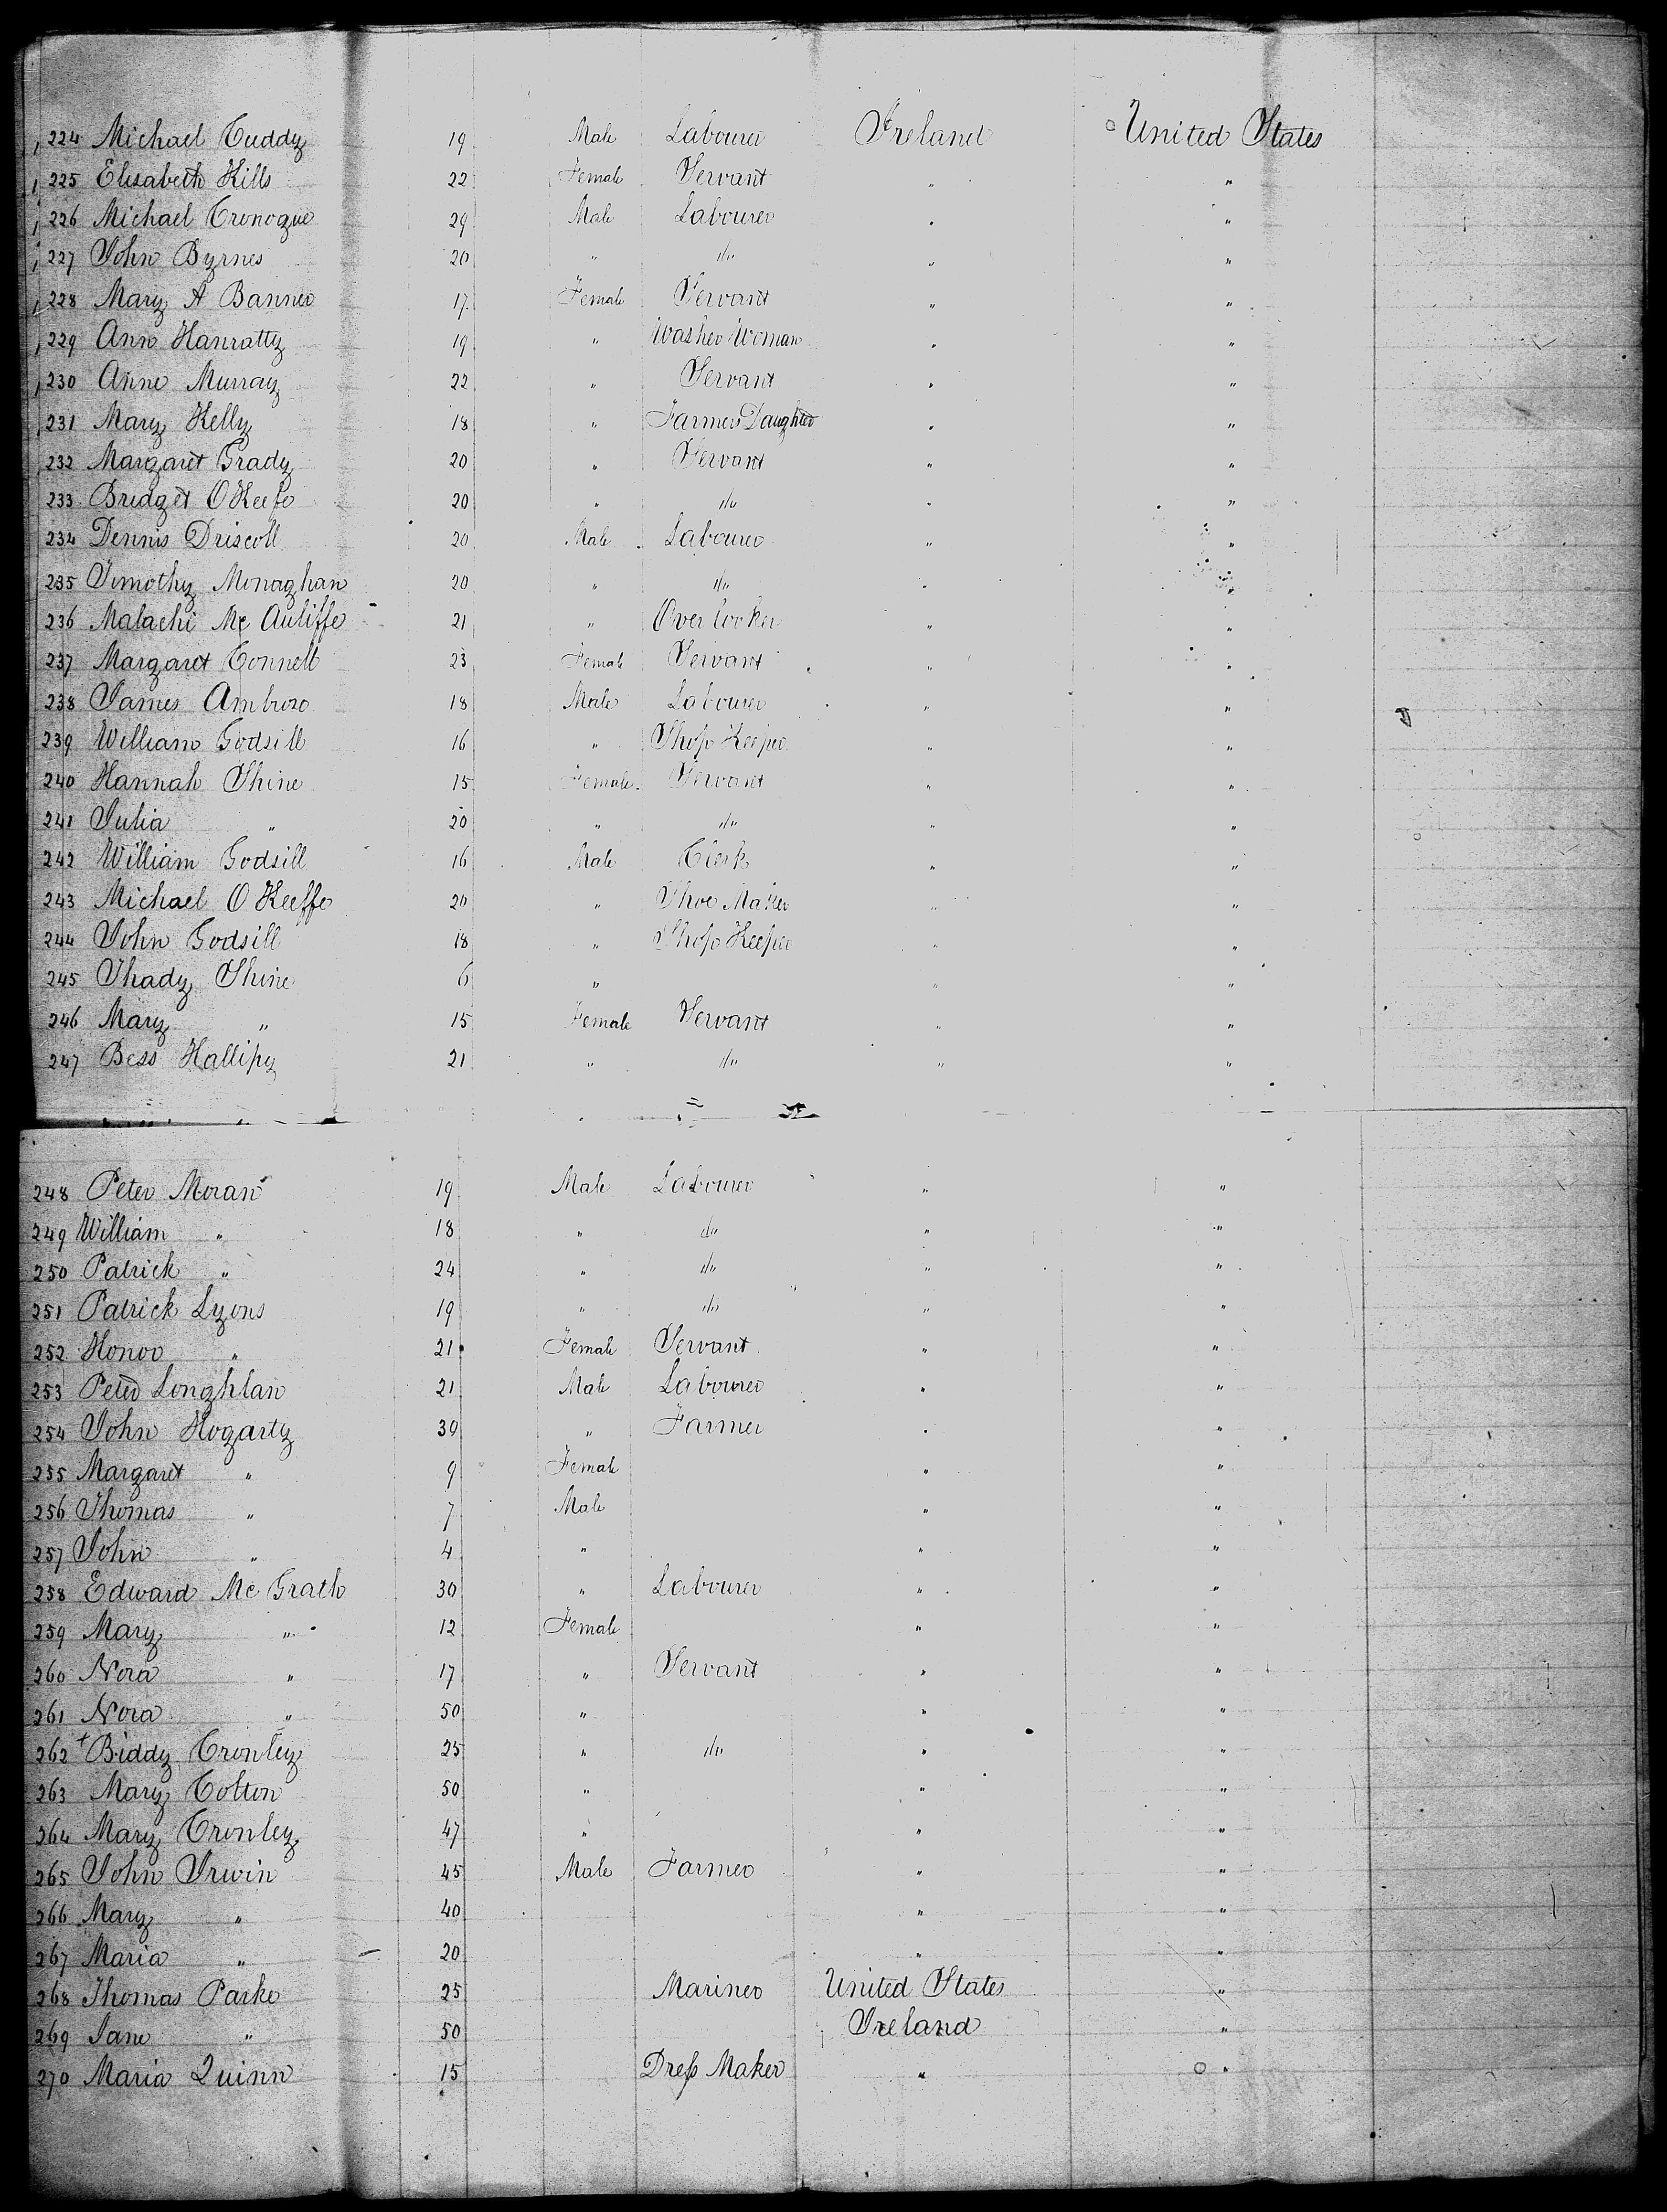 224 Michael Cuddy 19 Male Labourer Ireland United States
225 Elisabeth Hills 22 Female Servant " "
226 Michael Cronogue 29 Male Labourer " "
227 John Byrnes 20 " do " "
228 Mary A Banner 17 Female Servant " "
229 Ann Hanratty 19 " Washer Woman " "
230 Anne Murray 22 " Servant " "
231 Mary Kelly 18 " Farmers Daughter " "
232 Margaret Grady 20 " Servant " "
233 Bridget O Keefe 20 " do " "
234 Dennis Driscoll 20 Male Labourer " "
235 Timothy Monaghan 20 " do " "
236 Malachi Mc Auliffe 21 " Over looker " "
237 Margaret Connell 23 Female Servant " "
238 James Ambrose 18 Male Labourer " "
239 William Godsill 16 " Shop Keeper " "
240 Hannah Shine 15 Female Servant " "
241 Julia " 20 " do " "
242 William Godsill 16 Male Clerk " "
243 Michael O Keeffe 20 " Shoe Maker " "
244 John Godsill 18 " Shop Keeper " "
245 Thady Shine 6 " " "
246 Mary " 15 Female Servant " "
247 Bess Hallipy 21 " do " "
248 Peter Moran 19 Male Labourer " "
249 William " 18 " do " "
250 Patrick " 24 " do " "
251 Patrick Lyons 19 " do " "
252 Honor " 21 Female Servant " "
253 Peter Loughlan 21 Male Labourer " "
254 John Hogarty 39 " Farmer " "
255 Margaret " 9 Female " "
256 Thomas " 7 Male " "
257 John " 4 " " "
258 Edward Mc Grath 30 " Labourer " "
259 Mary " 12 Female " "
260 Nora " 17 " Servant " "
261 Nora " 50 " " "
262 + Biddy Cronley 25 " do " "
263 Mary Colton 50 " " "
264 Mary Cronley 47 " " "
265 John Irwin 45 Male Farmer " "
266 Mary " 40 " "
267 Maria " 20 " "
268 Thomas Parke 25 Mariner United States "
269 Jane " 50 Ireland "
270 Maria Quinn 15 Dress Maker " "